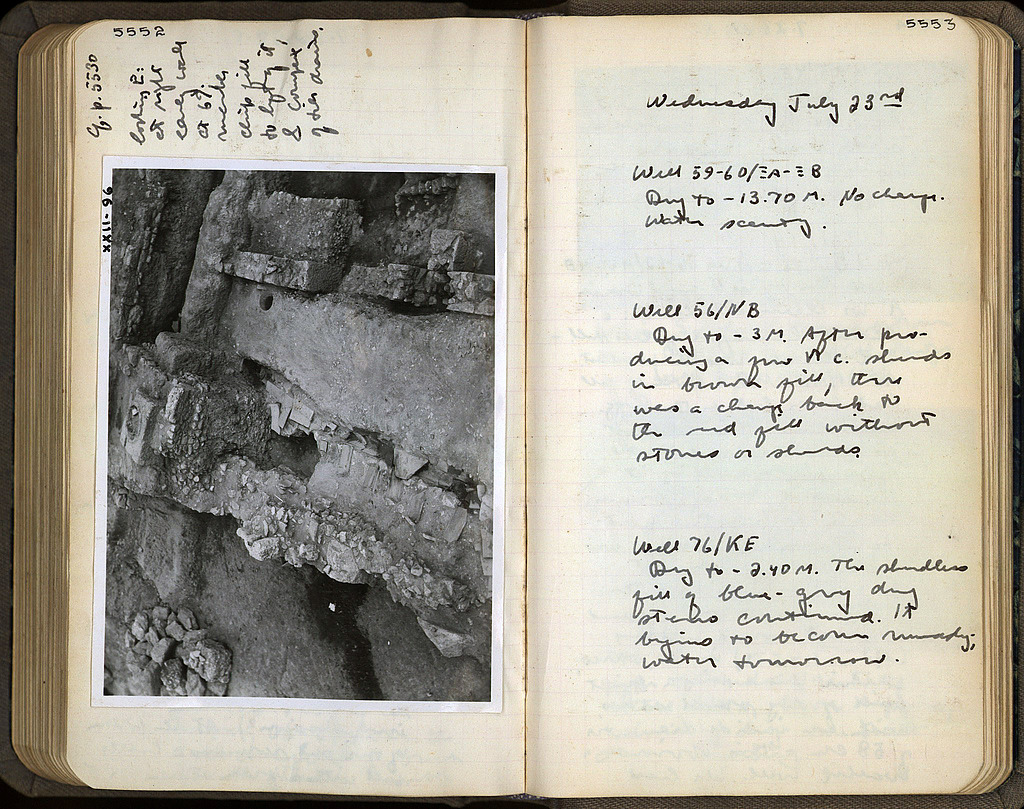 5552
Cf. p. 5530
looking E:
at right
early wall
at 67.
marks
chip fill
to left of it,
& complex
of tiles drains.
XXII-96
5553
Wednesday July 23rd
Well 59-60/ΞA-ΞB
Dug to -13.70 M. No change.
Water scanty.
Well 56/NB
Dug to -3 M. After pro-
ducing a few c. sherds
in brown fill, there
was a change back to
the red fill without
stones or sherds.
Well 76/KE
Dug to -2.40 M. The sherdless
fill of blue-gray dug
continued. It
begins to become muddy;
water tomorrow.